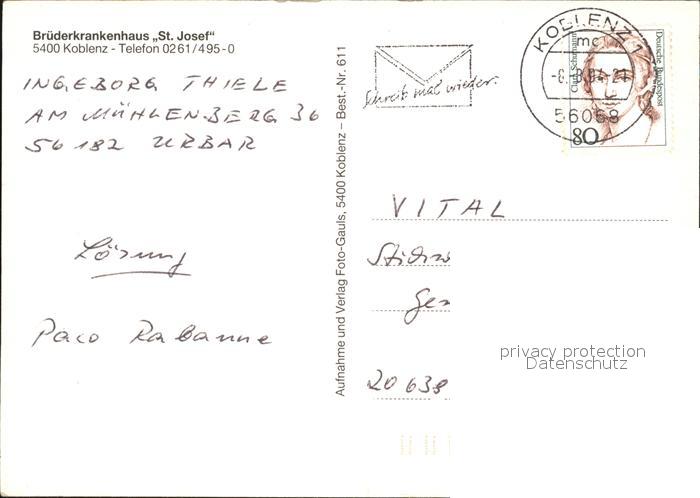 Brüderkrankenhaus „St. Josef“
5400 Koblenz - Telefon 0261/495-0
INGEBORG THIELE
AM MÜHLENBERG 36
56182 URBAR
Lösung
Paco Rabanne
Aufnahme und Verlag Foto-Gauls, 5400 Koblenz – Best.-Nr. 611
Schreib mal wieder.
KOBLENZ 1
mc
56068
Clara Schumann
Deutsche Bundespost
80
VITAL
20 638
privacy protection
Datenschutz